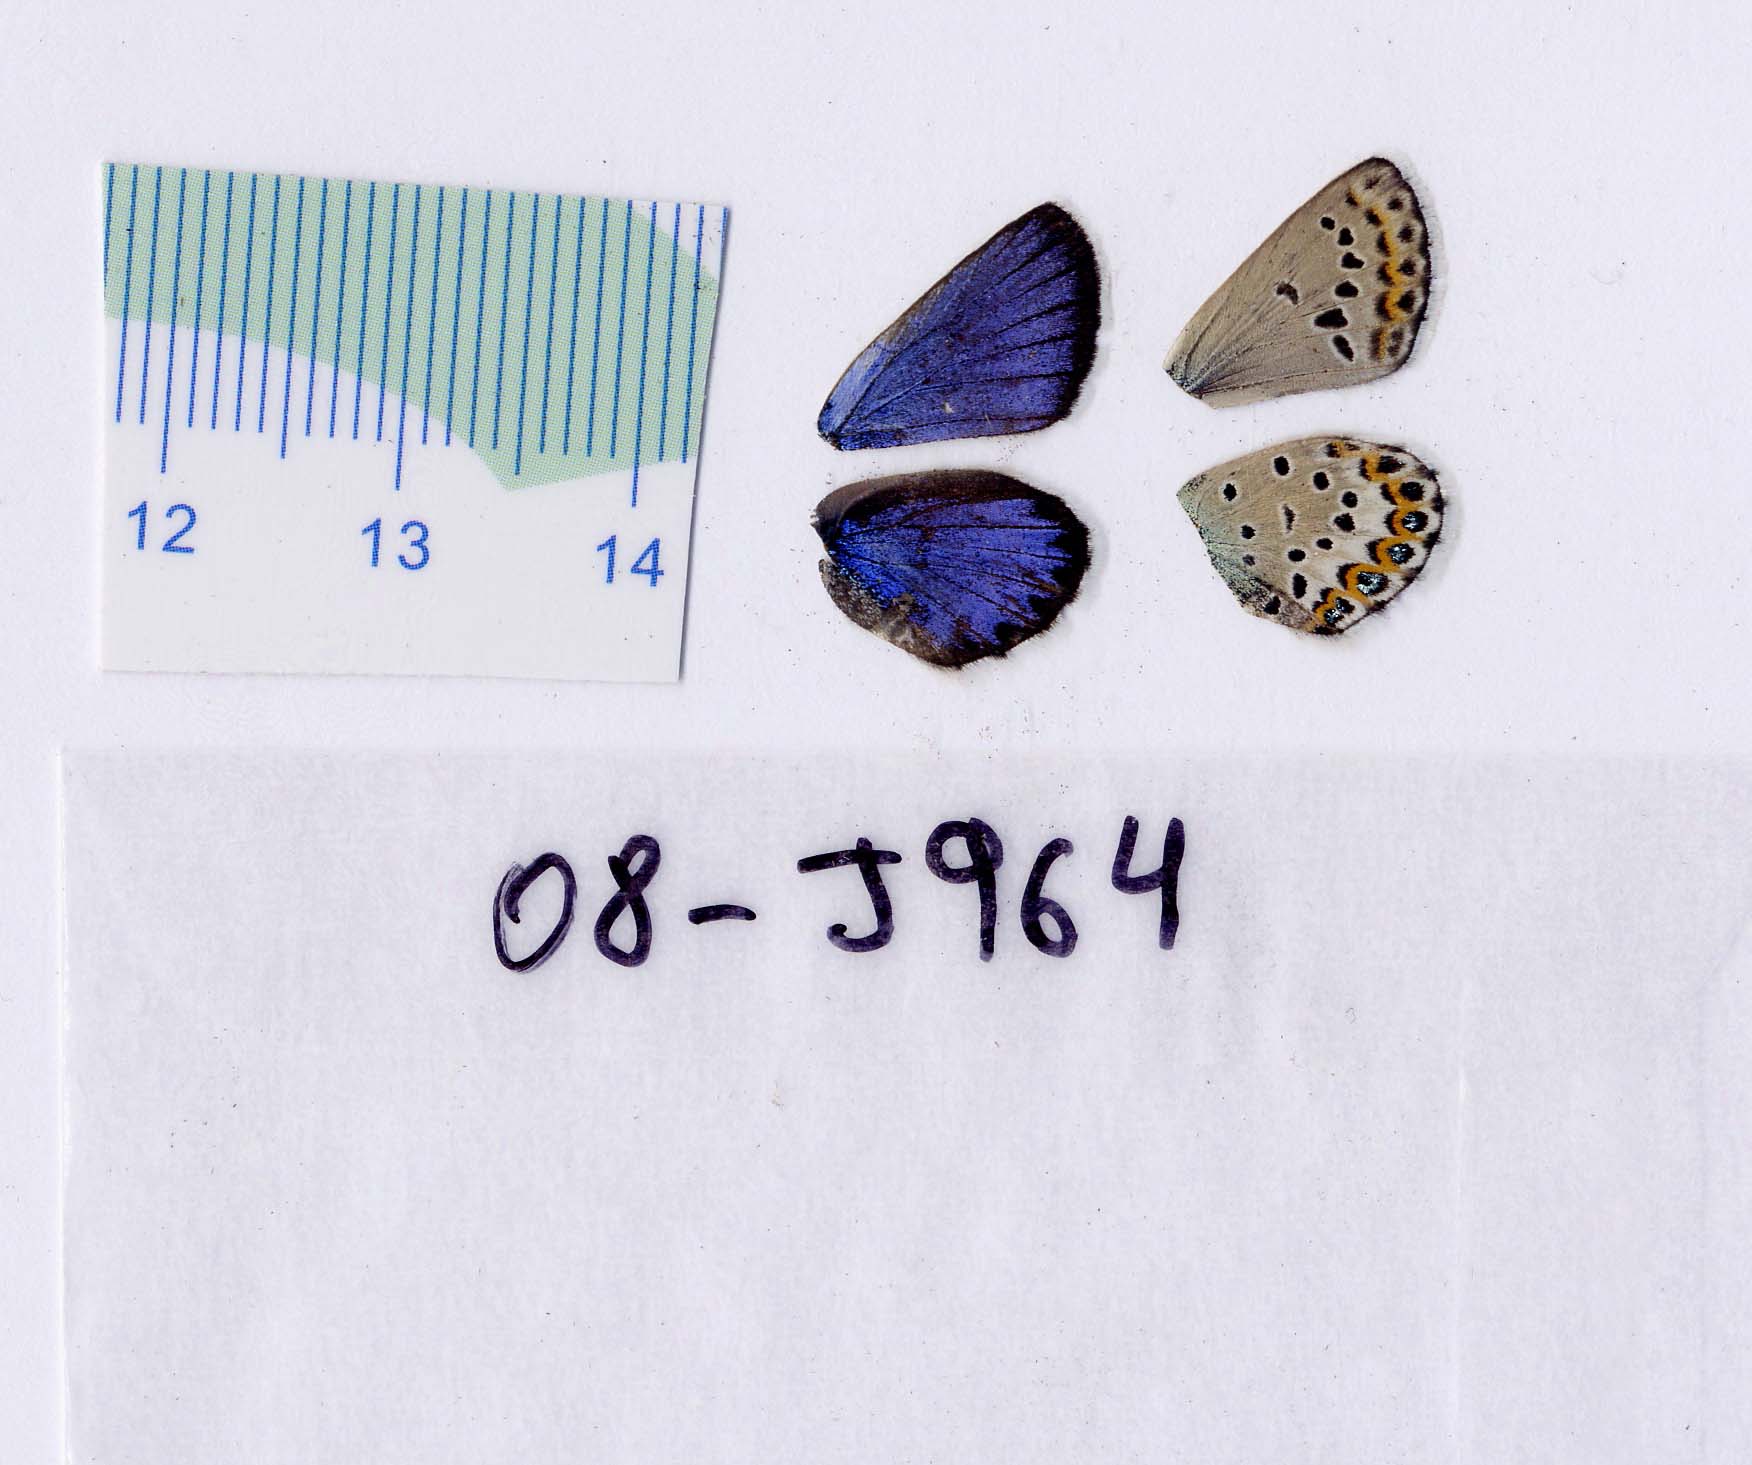 12 13 14
08-J964